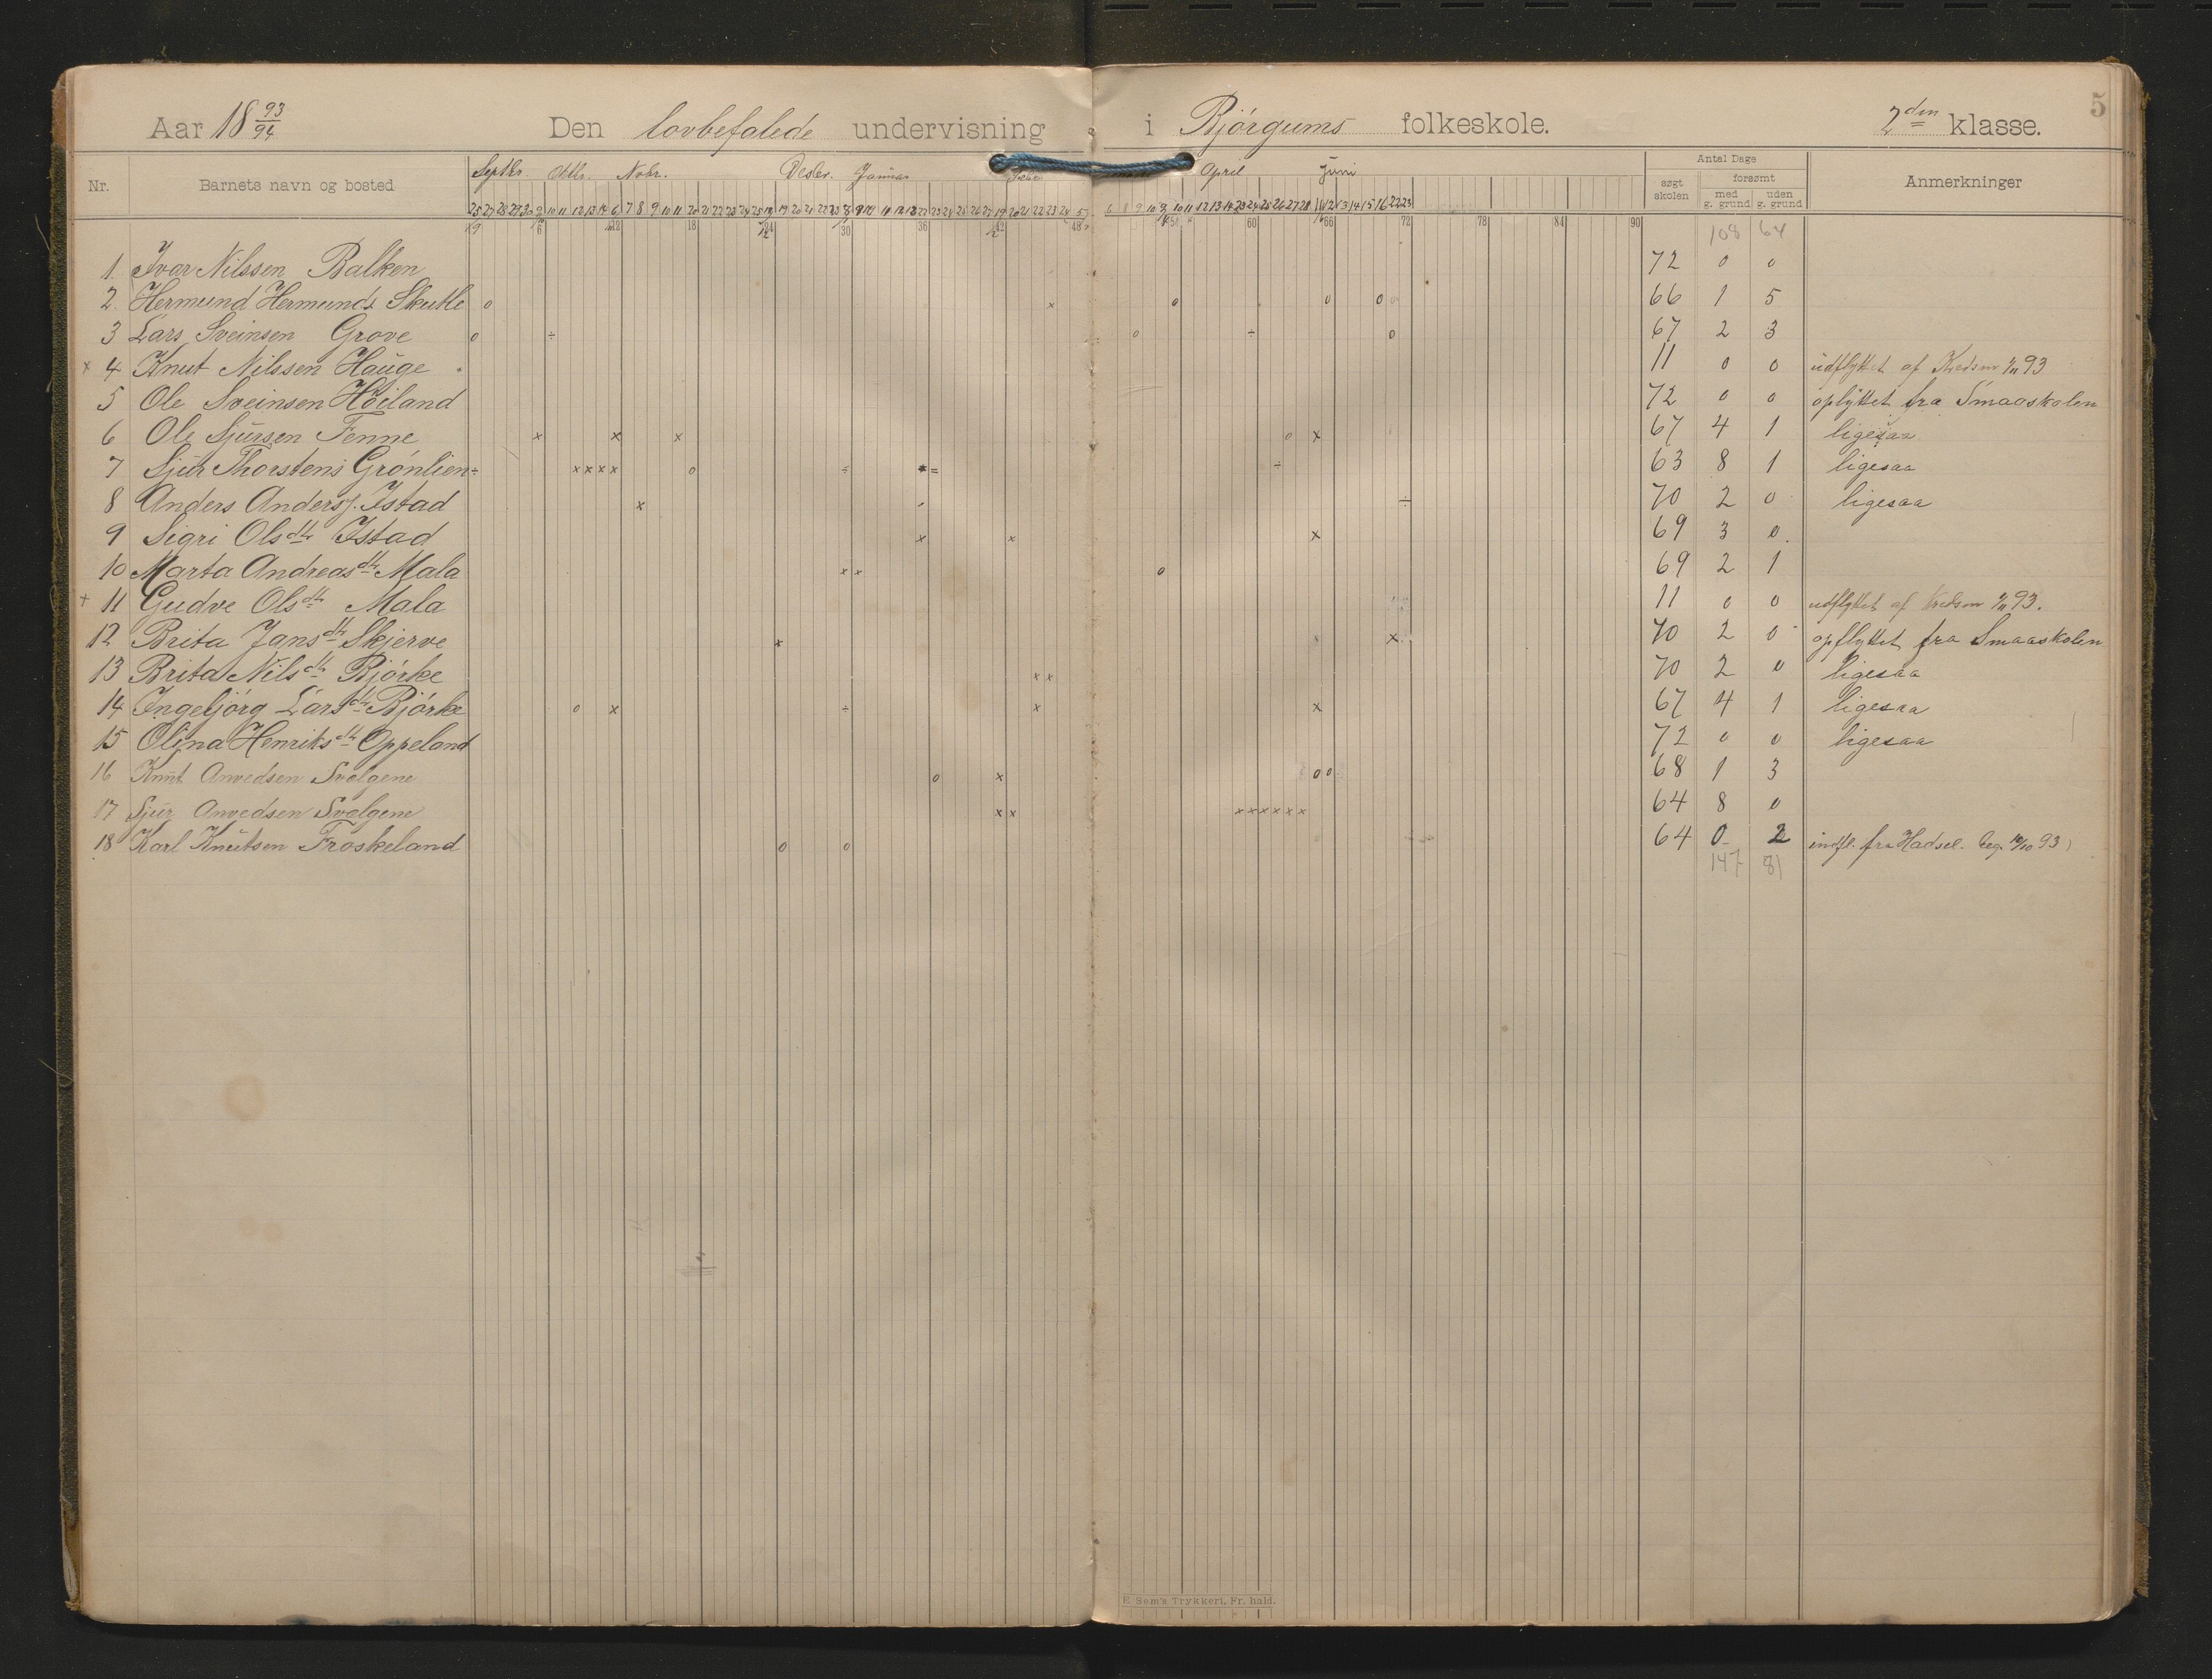 5
Aar 18 93/94 Den lovbefalede undervisning i Bjørgums folkeskole. 2den klasse.
Nr. Barnets navn og bosted Septbr. Oktbr. Nobr. Desbr. Januar Febr. April Juni Antal Dage Anmerkninger
søgt skolen forsømt
med g. grund uden g. grund
6 12 18 24 30 36 42 48 54 60 66 72 78 84 90
108 64
1. Ivar Nilssen Balken 72 0 0
2. Hermund Hermunds. Skutle o x o o o o 66 1 5
3 Lars Sveinsen Grove o ÷ o ÷ o 67 2 3
x 4 Knut Nilssen Hauge 11 0 0 udflyttet af Kredsen 1/11 93
5 Ole Sveinsen Høiland 72 0 0 oplyttet fra Smaaskolen
6 Ole Sjursen Fenne x x x o x 67 4 1 ligesaa
7 Sjur Thorstens Grønlien ÷ x x x x o ÷ x = ÷ 63 8 1 ligesaa
8 Anders Anders. Istad x ÷ 70 2 0 ligesaa
9 Sigri Olsdtr Istad x x x 69 3 0.
10 Marta Andreasdtr Mala x x o 69 2 1
+ 11 Gudve Olsdtr Mala 11 0 0 udflyttet af Kredsen 1/11 93.
12 Brita Jansdtr Skjerve x x 70 2 0 opflyttet fra Smaaskolen
13 Brita Nilsdtr Bjørke x x 70 2 0 ligesaa
14 Ingebjørg Larsdtr Bjørke o x ÷ x x 67 4 1 ligesaa
15 Olina Henriksdtr Oppeland 72 0 0 ligesaa
16 Knut Anvedsen Svelgene o x o o 68 1 3
17 Sjur Anvedsen Svelgene x x x x x x x x 64 8 0
18 Karl Knutsen Froskeland o o 64 0 2 indfl. fra Hadsel. beg. 10/10 93)
147 81
E Sem's Trykkeri, Fr. hald.